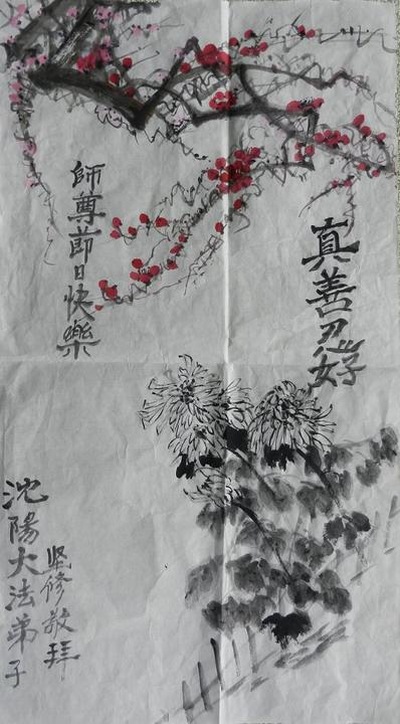 真善忍好
師尊節日快樂
沈陽大法弟子
坚修敬拜